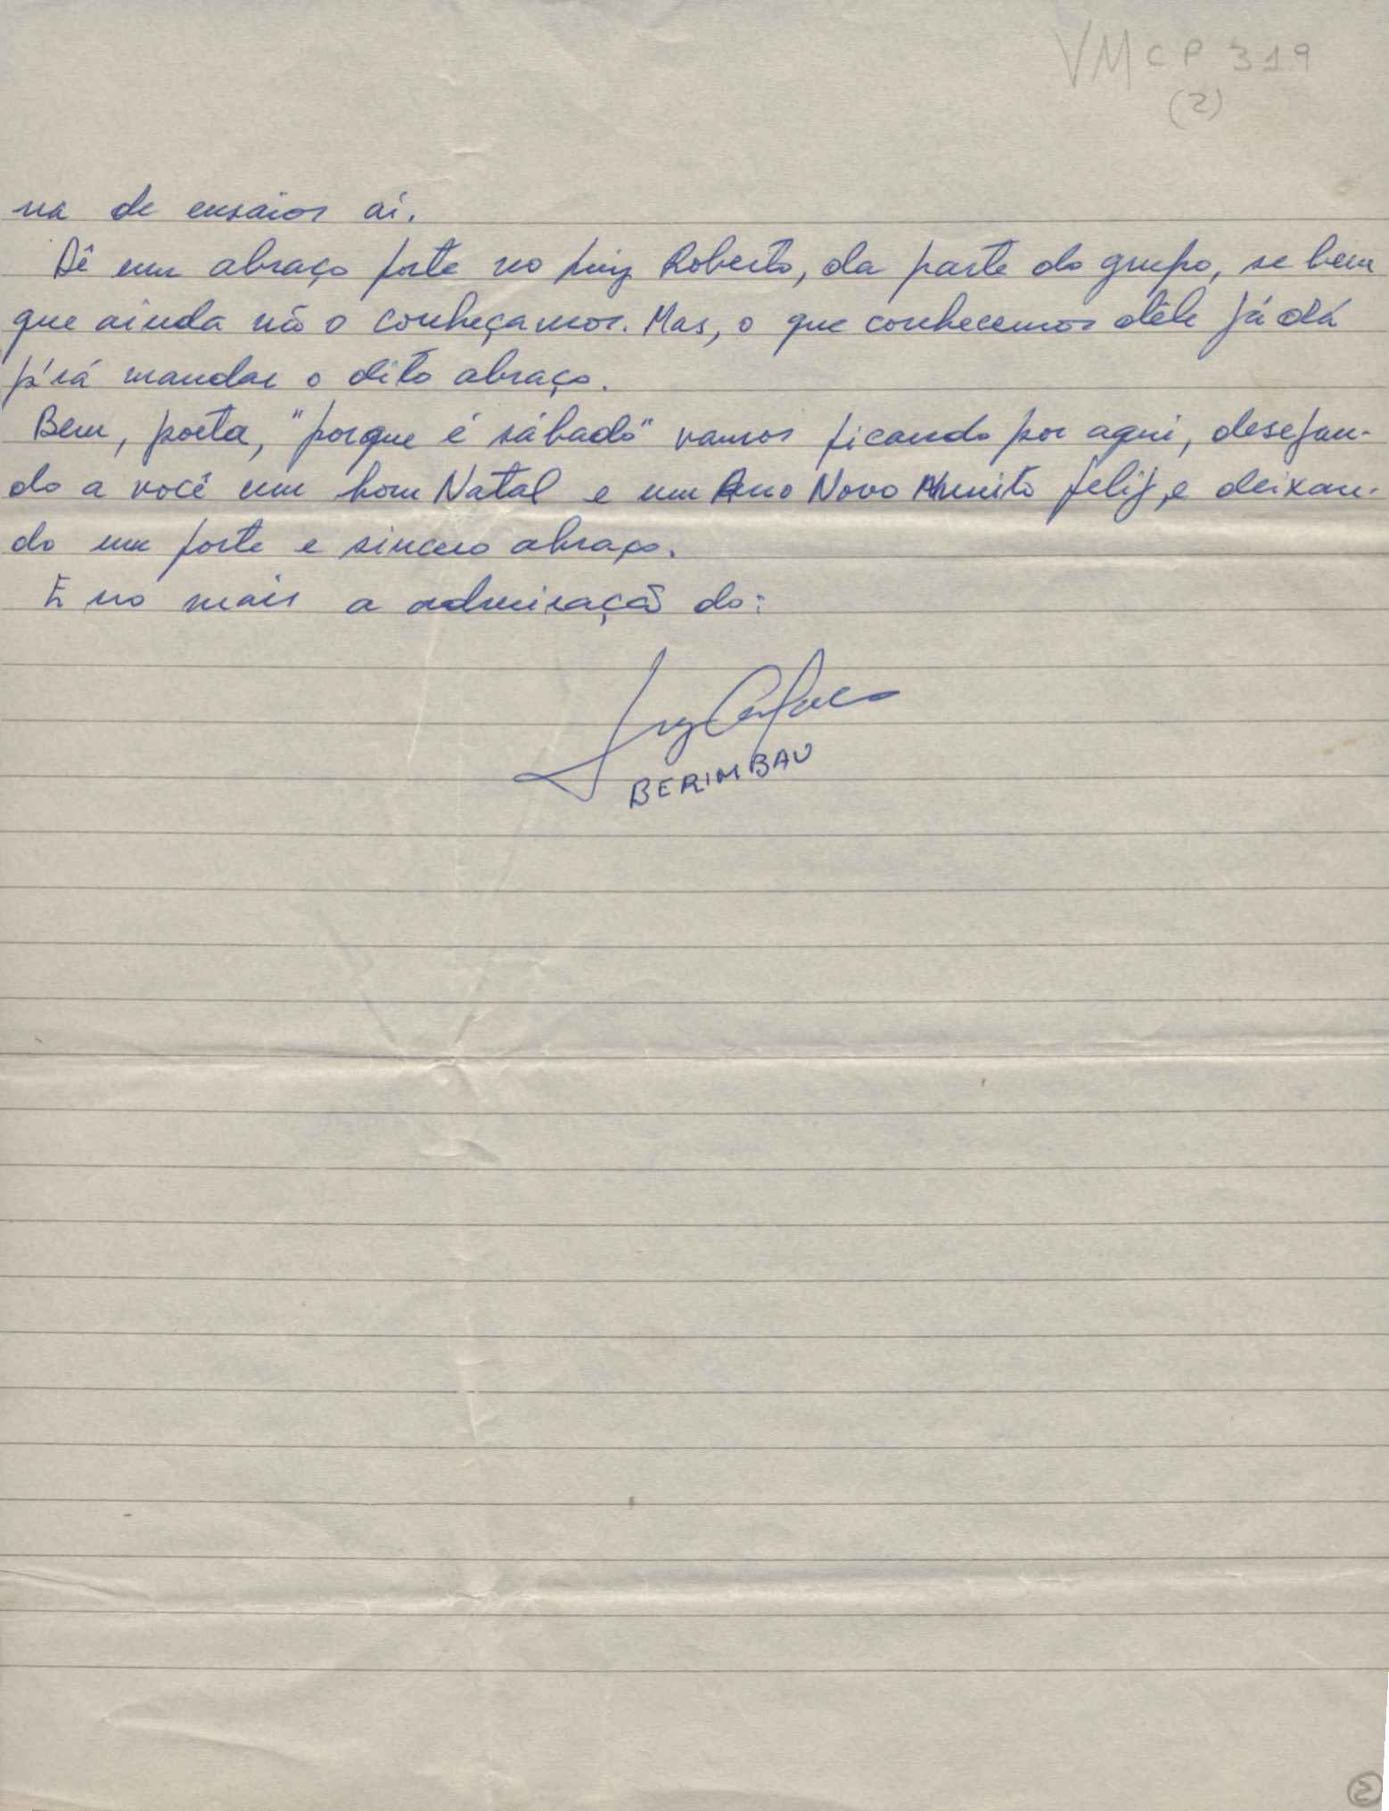 VMCP 319
(2)
na de ensaios aí.
Dê um abraço forte no Luiz Roberto, da parte do grupo, se bem
que ainda não o conheçamos. Mas, o que conhecemos dêle já dá
p'rá mandar o dito abraço.
Bem, poeta, "porque é sábado" vamos ficando por aqui, desejan-
do a você um bom Natal e um Ano Novo muito feliz, e deixan-
do um forte e sincero abraço.
E no mais a admiração do:
Luiz
BERIMBAU